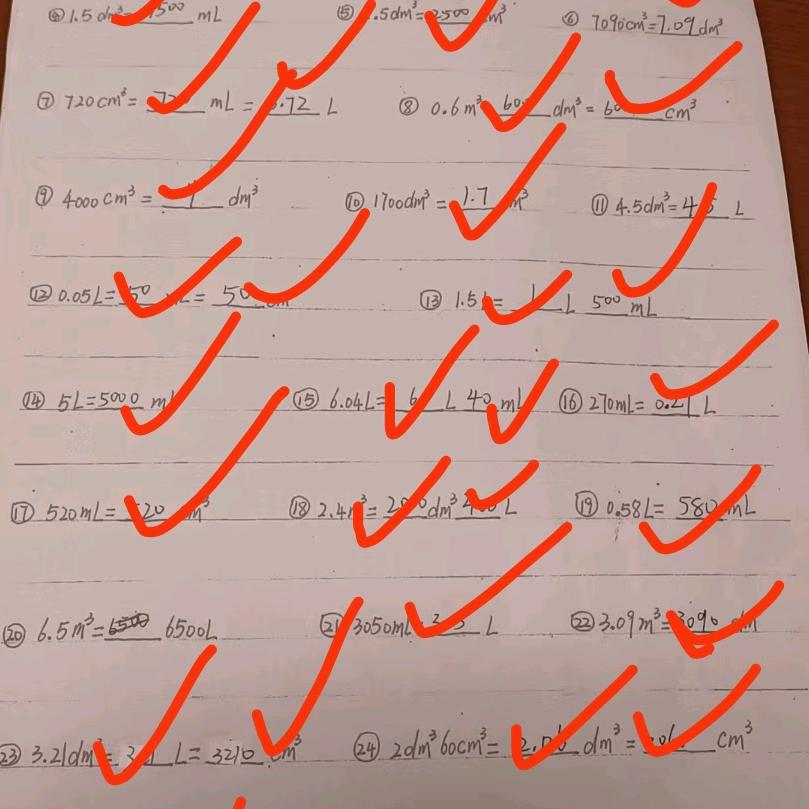 ④ 1.5dm³= 1500 mL ⑤ .5dm³= 2500 cm³ ⑥ 7090cm³=7.09dm³
⑦ 720cm³= mL = 0.72 L ⑧ 0.6m³ 60 dm³= 60 cm³
⑨ 4000cm³= 4 dm³ ⑩ 1700dm³= 1.7 m³ ⑪ 4.5dm³= 4.5 L
⑫ 0.05L= 50 mL= 50 cm³ ⑬ 1.5L= 1 L 500 mL
⑭ 5L=5000 mL ⑮ 6.04L= 6 L 40 mL ⑯ 270mL= 0.27 L
⑰ 520mL= 520 cm³ ⑱ 2.4m³= dm³ L ⑲ 0.58L= 580 mL
⑳ 6.5m³= 6500 6500L ㉑ 3050mL= L ㉒ 3.09m³= 3090 dm
㉓ 3.21dm³= L= 3210 cm³ ㉔ 2dm³60cm³= 2.06 dm³= cm³